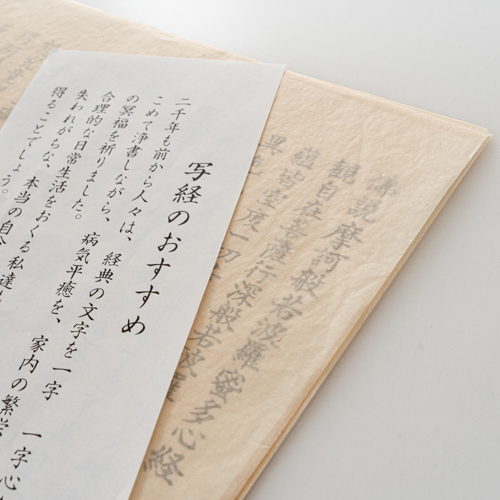 写経のおすすめ
二千年も前から人々は、経典の文字を一字 一字心
こめて浄書しながら、病気平癒を、家内の繁栄
の冥福を祈りました。
合理的な日常生活をおくる私達
失われがちな、本当の自分
得ることでしょう。
佛説摩訶般若波羅蜜多心経
観自在菩薩行深般若波羅
蘊皆空度一切
異色